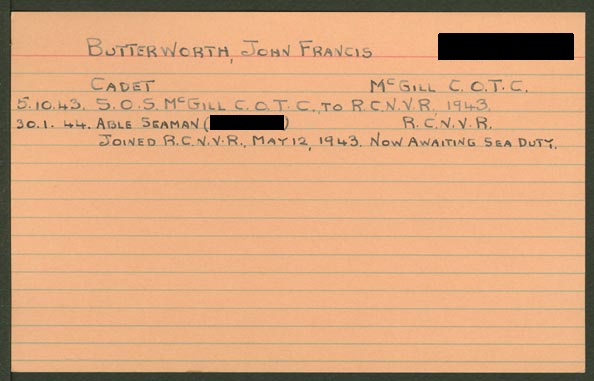 BUTTERWORTH, JOHN FRANCIS
CADET McGILL C.O.T.C.
5.10.43. S.O.S. McGILL C.O.T.C., TO R.C.N.V.R. 1943.
30.1.44. ABLE SEAMAN ( ) R.C.N.V.R.
JOINED R.C.N.V.R., MAY 12, 1943. NOW AWAITING SEA DUTY.